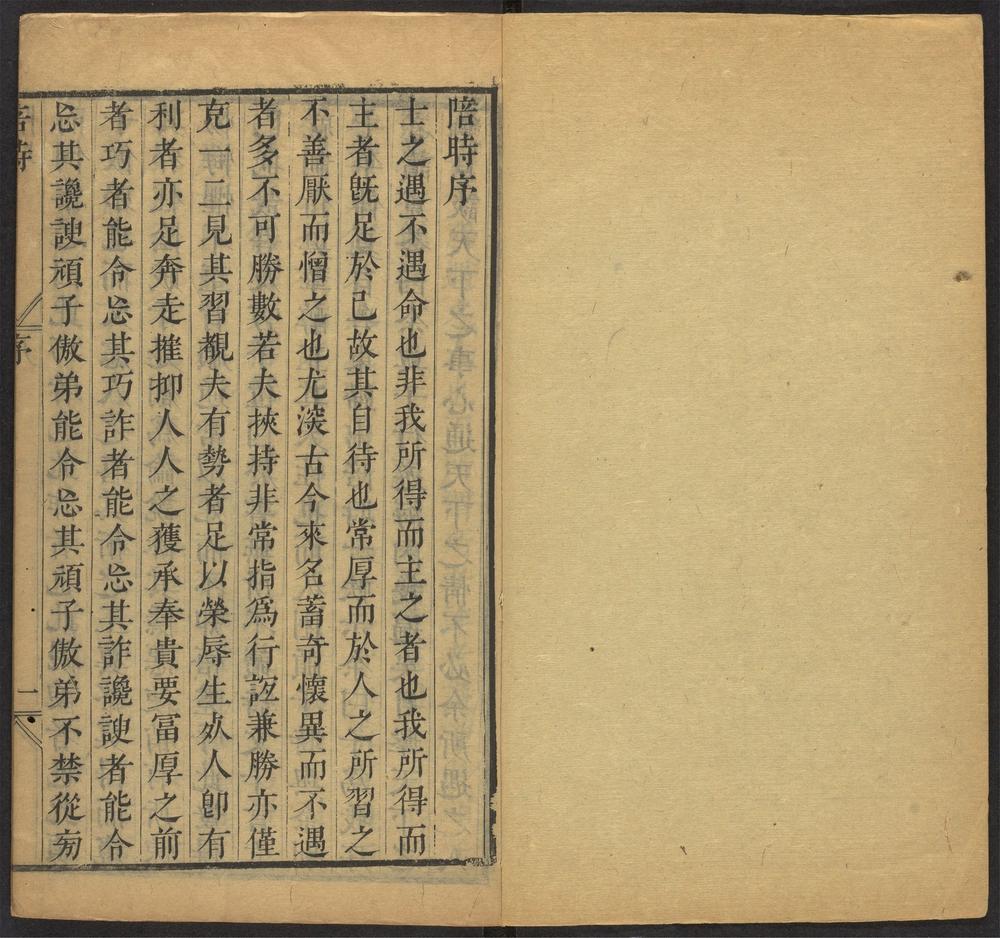 陪時序
士之遇不遇命也非我所得而主之者也我所得而
主者旣足於己故其自待也常厚而於人之所習之
不善厭而憎之也尤淡古今來名蓄奇懷異而不遇
者多不可勝數若夫挾持非常指爲行誼兼勝亦僅
克一二見其習覩夫有勢者足以榮辱生死人卽有
利者亦足奔走摧抑人人之獲承奉貴要冨厚之前
者巧者能令忘其巧詐者能令忘其詐讒諛者能令
忘其讒諛頑子傲弟能令忘其頑子傲弟不禁從旁
陪時
序
一